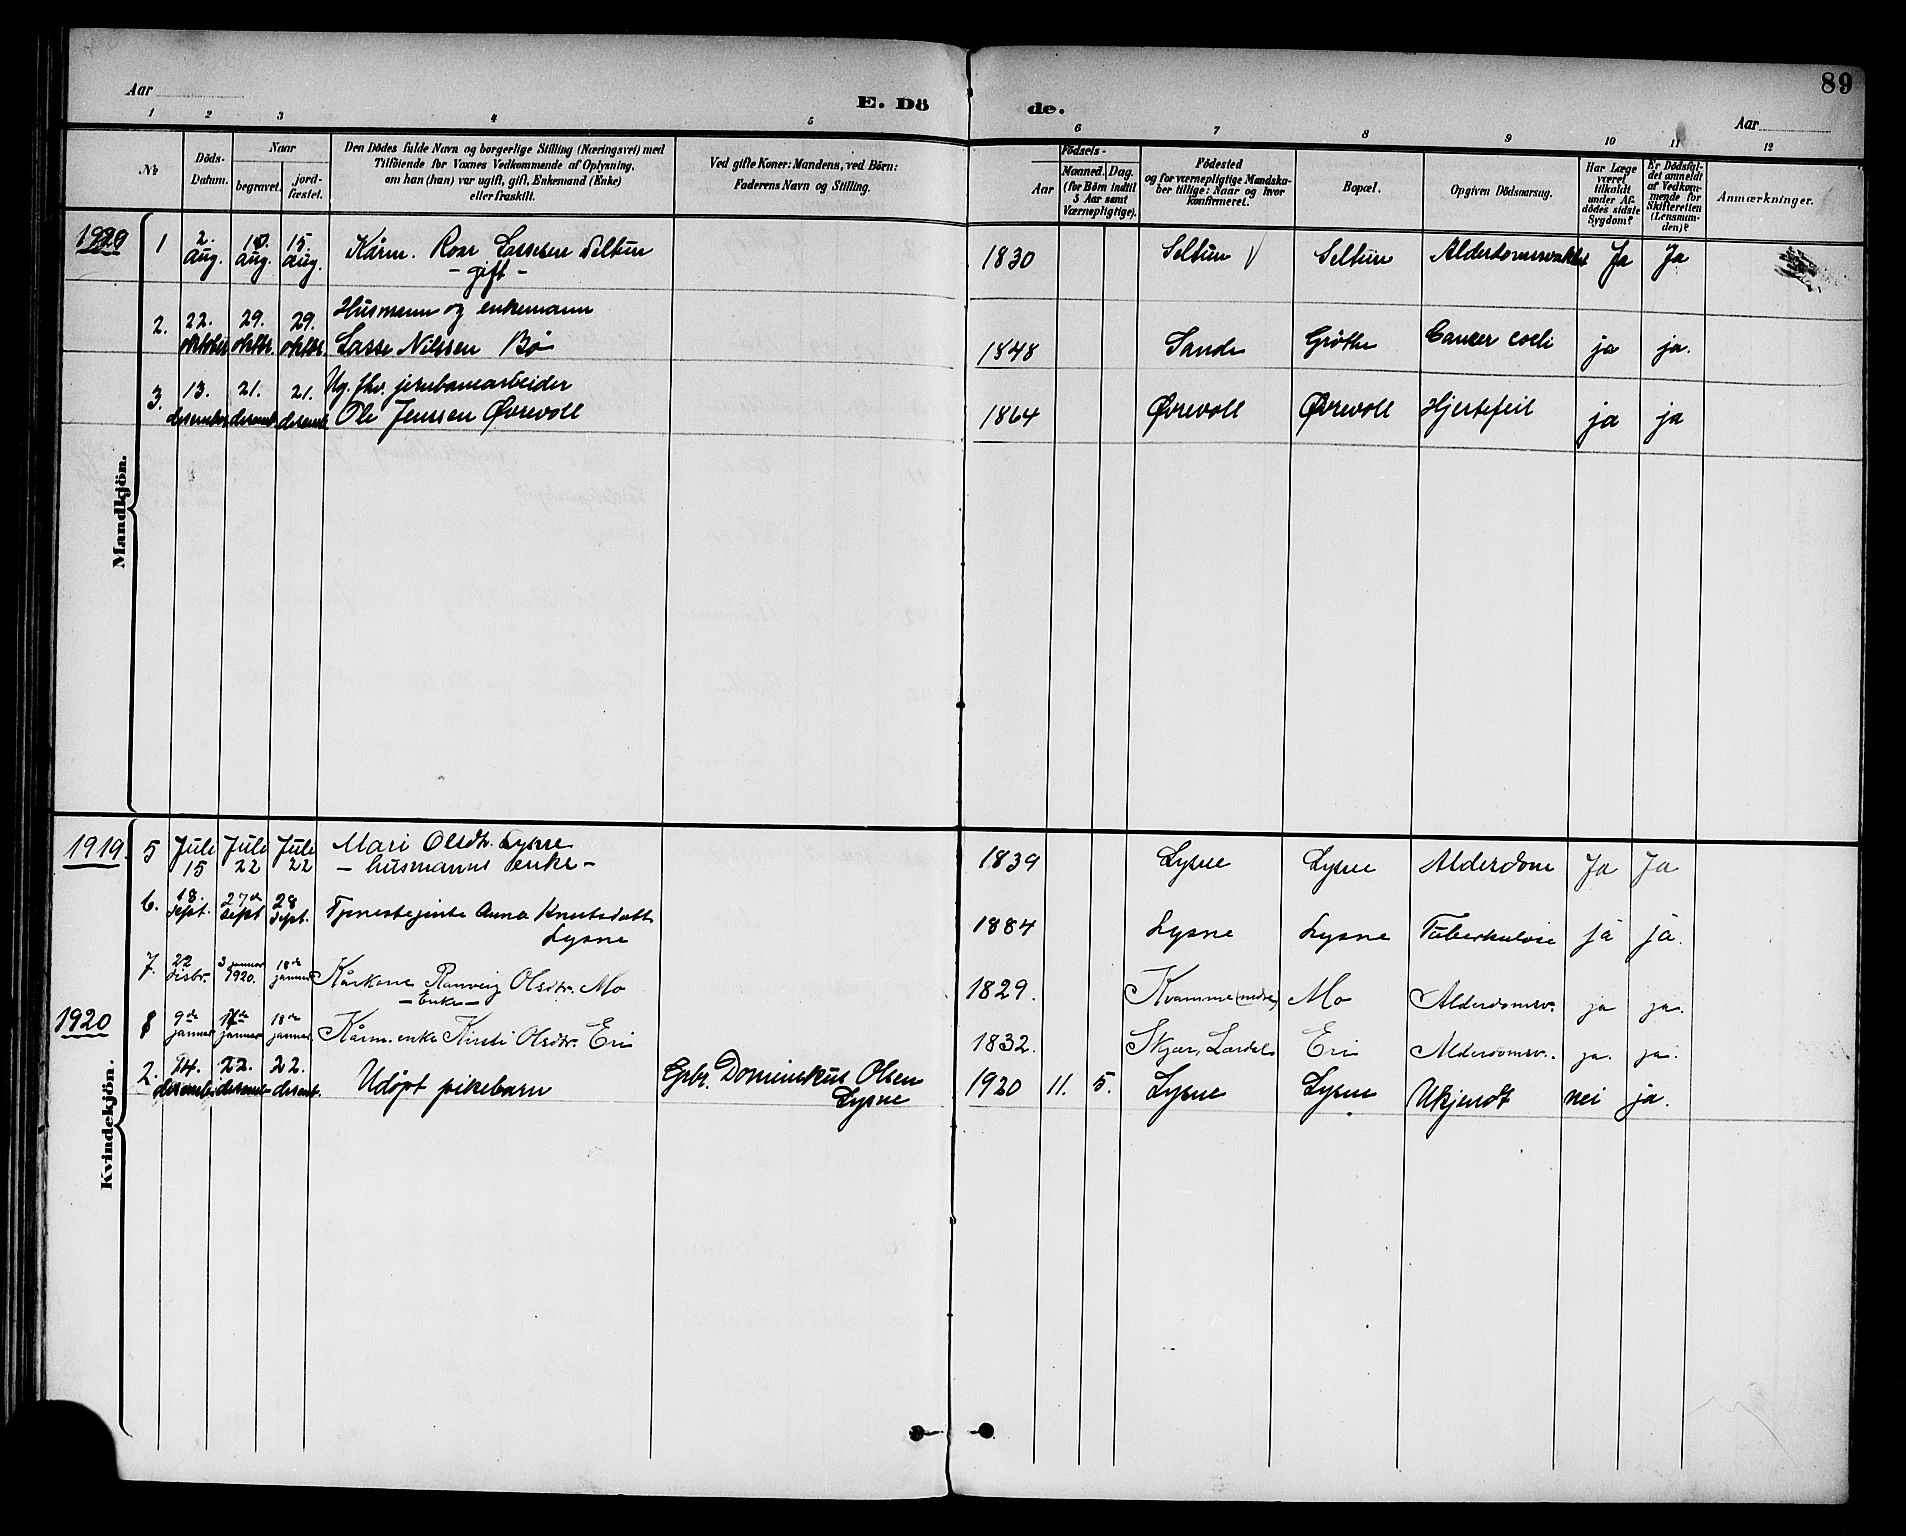 89
Aar
E. Dö de.
Aar
1 2 3 4 5 6 7 8 9 10 11 12
No
Döds-Datum.
Naar
begravet.
jord-fæstet.
Den Dödes fulde Navn og borgerlige Stilling (Næringsvei) med
Tilföiende for Voxnes Vedkommende af Oplysning,
om han (hun) var ugift, gift, Enkemand (Enke)
eller fraskilt.
Ved gifte Koner: Mandens, ved Börn:
Faderens Navn og Stilling.
Födsels-
Aar
Maaned. Dag.
(for Börn indtil
5 Aar samt
Værnepligtige).
Födested
og for værnepligtige Mandska-
ber tillige: Naar og hvor
Konfirmeret.
Bopæl.
Opgiven Dödsaarsag.
Har Læge
været
tilkaldt
under Af-
dödes sidste
Sygdom?
Er Dödsfal-
det anmeldt
af Vedkom-
mende for
Skifteretten
(Lensman-
den)?
Anmærkninger.
Mandkjön.
1920 1 2. Aug. 10. Aug. 15. Aug. Kårm. Lassesen Seltun 1830 Seltun Seltun Ja Ja
- gift -
Husmann og enkemann
2. 22. oktober 29. oktbr. 29. oktbr. Lasse Nilssen Bø 1848 Sande Grøthe Cancer coeli ja ja.
Ug. fhv. jernbanearbeider
3. 13. desember 21. desemb. 21. desemb. Ole Jenssen Øvrevoll 1864 Øvrevoll Øvrevoll Hjertefeil ja ja
Kvindekjön.
1919. 5 Juli 15 Juli 22 Juli 22 Mari Olsdtr. Lysne 1839 Lysne Lysne Alderdom Ja Ja
- husmanns enke -
6. 18. sept. 27de sept 28 sept. Tjenestejente Anna Knutsdatt. 1884 Lysne Lysne Tuberkulose ja ja.
Lysne
7. 22 desbr. 3 januar 1920. 18de januar Kårkone Ranveig Olsdtr. Mo 1829. Kvamme (nedre) Mo Alderdomssv. ja ja.
- Enke -
1920 8 9de januar januar 18de januar. Kårm. enke Kirsti Olsdtr. Eri 1832. Skjær, Lærdal Eri Alderdomsv. ja. ja.
2. 14. desember 22. desemb 22. desemb. Udöpt pikebarn Gbr. Dominikus Olsen 1920 11. 5. Lysne Lysne Ukjendt nei ja.
Lysne